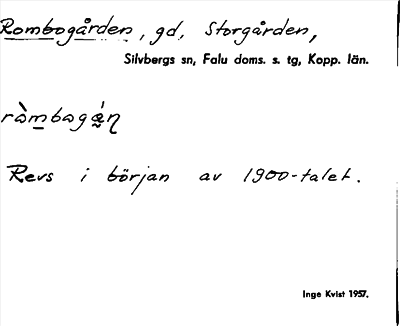 Rombogården, gd, Storgården,
Silvbergs sn, Falu doms. s. tg, Kopp. län.
Revs i början av 1900-talet.
Inge Kvist 1957.